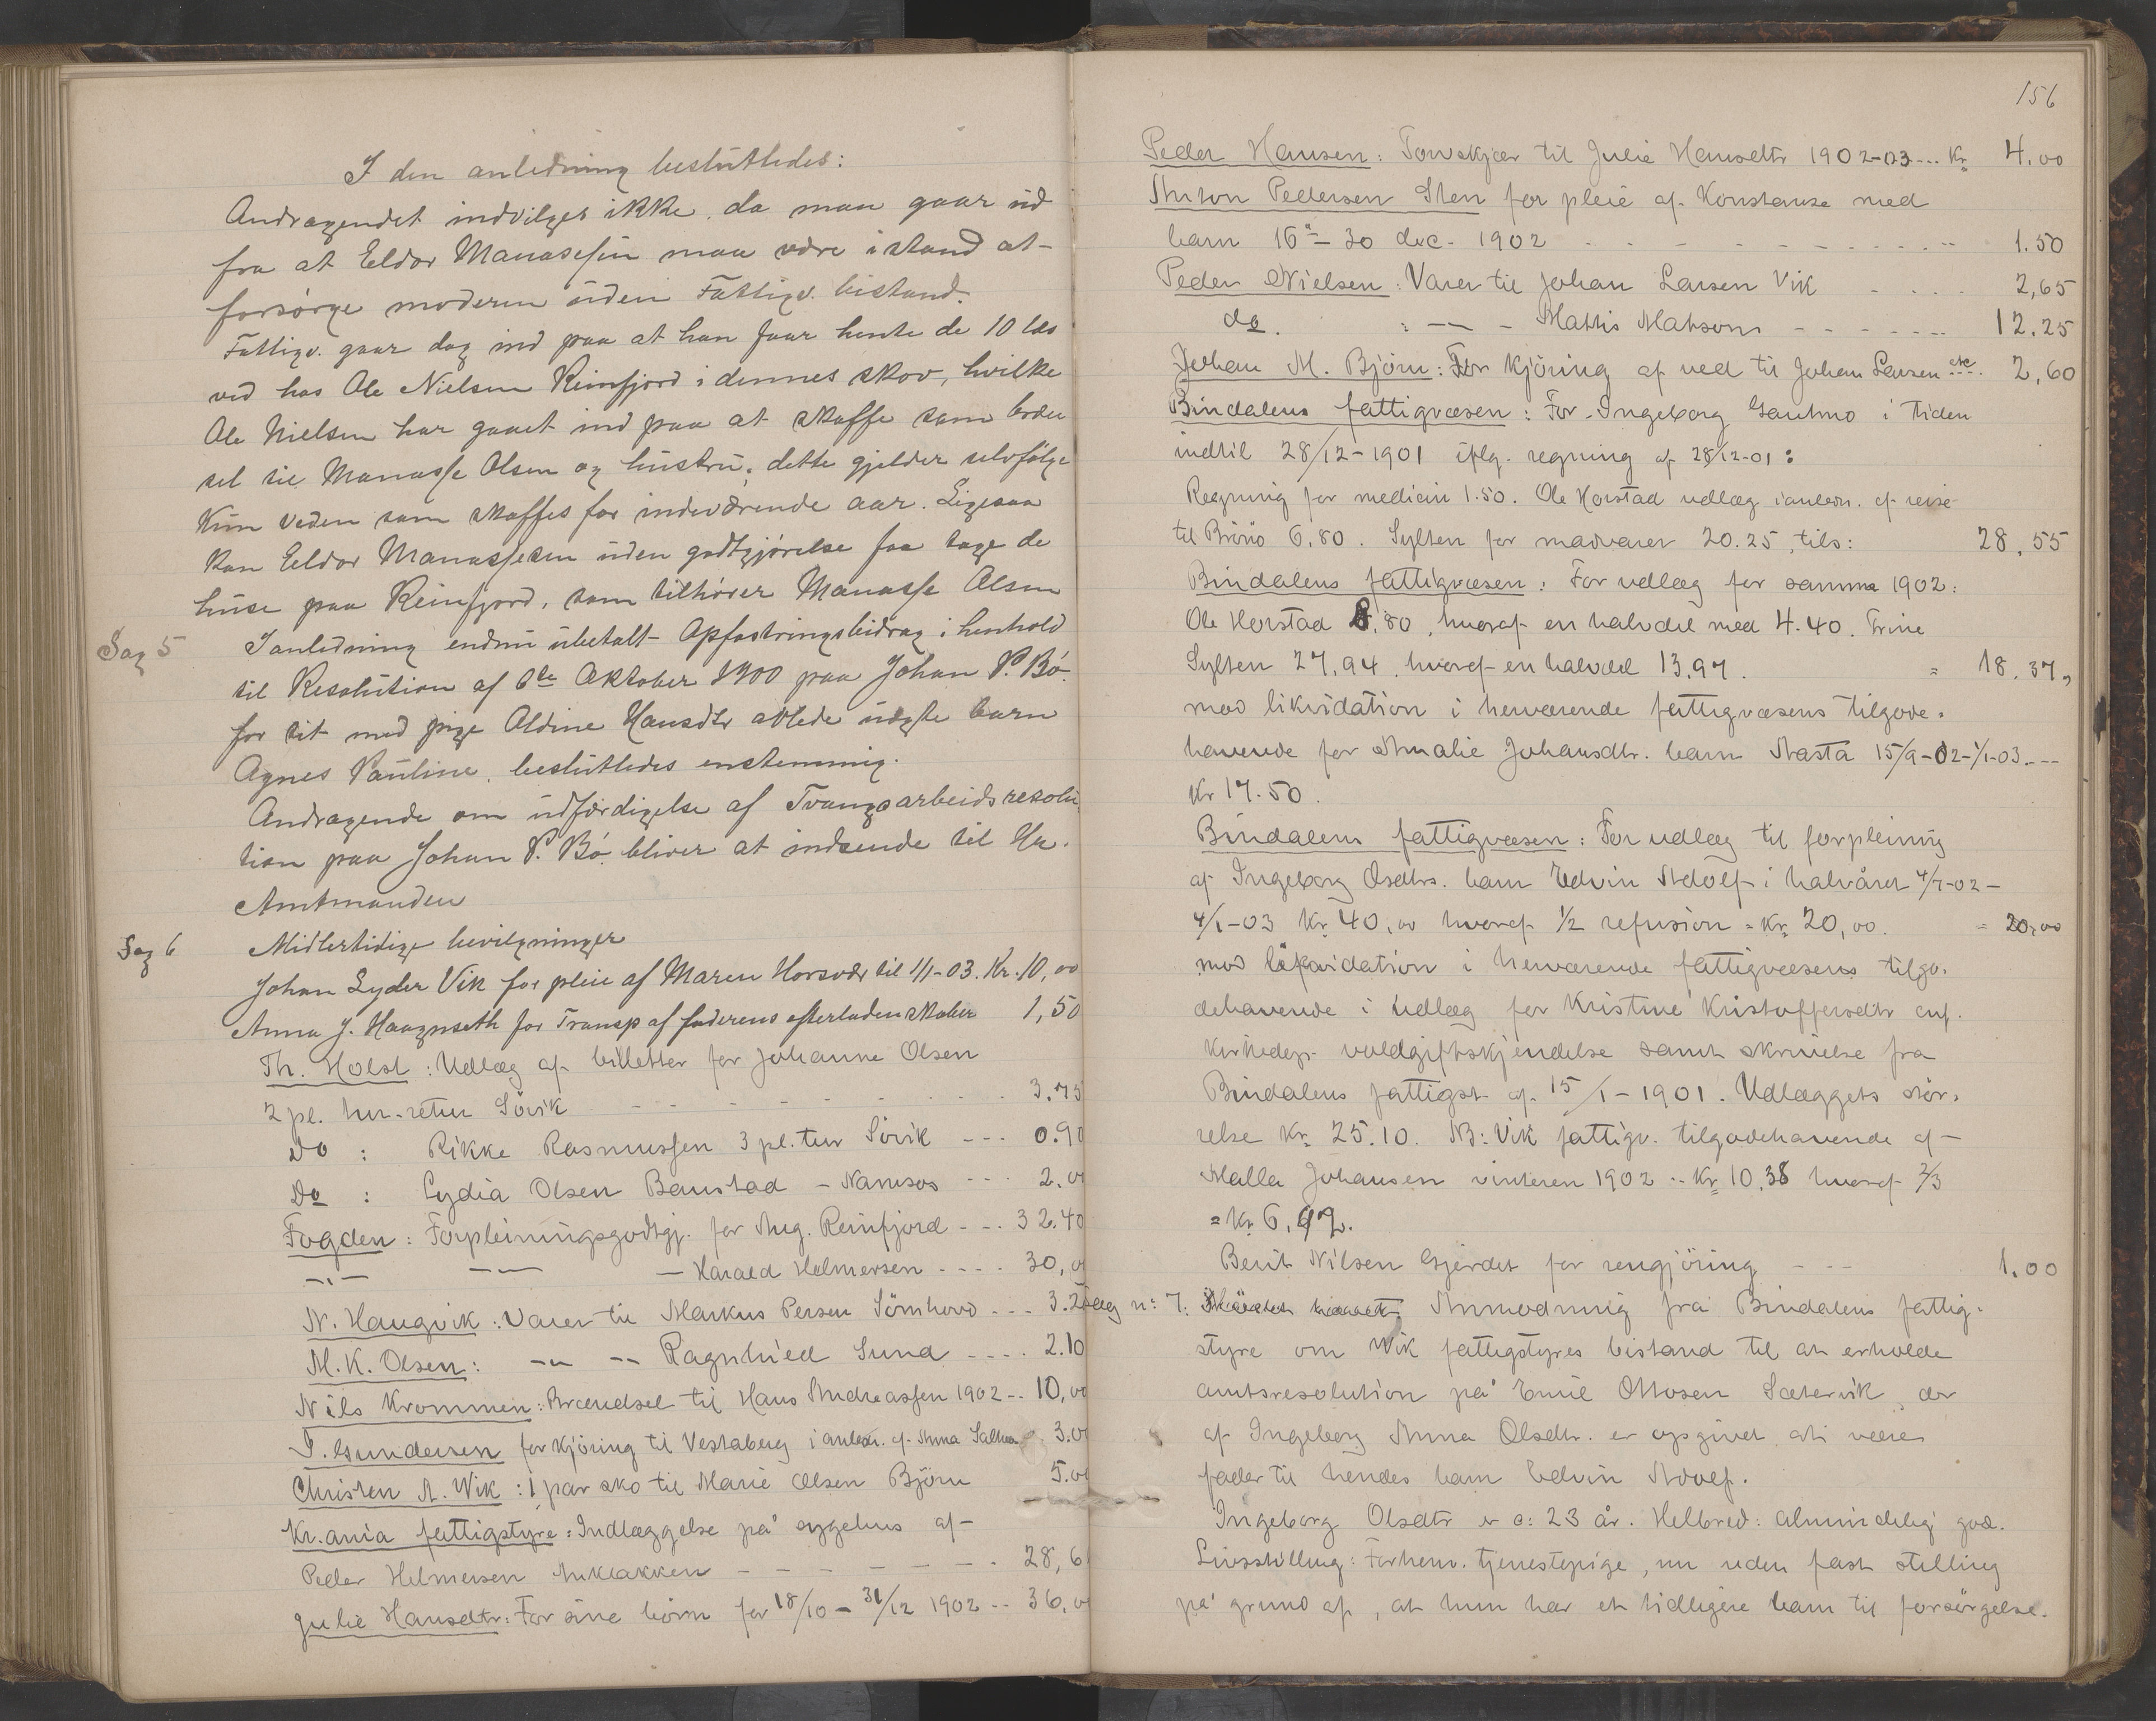 I den anledning besluttedes:
Andragendet indvilges ikke, da man gaar ud
fra at Eldor Manassesen maa være istand at
forsørge moderen uden Fattigv. bistand.
Fattigv. gaar dog ind paa at han faar hente de 10 læs
ved hos Ole Nielsen Reinfjord i dennes skov, hvilke
Ole Nielsen har gaaet ind paa at skaffe som bræn
sel til Manasse Olsen og hustru, dette gjelder selvfølge
kun veden som skaffes for indeværende aar. Ligesaa
kan Eldor Manassesen uden godtgjørelse faa tage de
huse paa Reinfjord, som tilhører Manasse Olsen
Sag 5 Ianledning endnu ubetalt Opfostringsbidrag i henhold
til Resolution af 6te Oktober 1900 paa Johan P. Bö.
for sit med pige Oldine Hansdtr avlede uægte barn
Agnes Pauline, besluttedes enstemmig.
Andragende om udfærdigelse af Tvangsarbeidsresolu
tion paa Johan P. Bö bliver at indsende til Hr.
Amtmanden
Sag 6 Midlertidige bevilgninger
Johan Lyder Vik for pleie af Maren Horsvdr til 1/1-03. Kr. 10,00
Anna J. Haagnseth for Transp af faderens efterladenskaber 1,50
Th. Holst: Udlæg af billetter for Johanne Olsen
2 pl. tur-retur Sövik 3.75
Do : Rikke Rasmussen 3 pl. tur Sövik --- 0.90
Do : Lydia Olsen Baustad - Namsos --- 2.00
Fogden: Forpleiningsgodtgj. for Aug. Reinfjord --- 32.40
-"- -"- - Harald Helmersen ---- 30,00
N. Haugvik: Varer til Markus Persen Sömhovd --- 3.25
M. K. Olsen: -"- -"- Ragnhild Sund ---- 2.10
Nils Krommen: Brændsel til Hans Andreassen 1902 -- 10,00
I. Gundersen for kjöring til Vestaberg i anledn. af Anna 3.00
Christen A. Wik: 1 par sko til Marie Olsen Björn 5.00
Kr.ania fattigstyre: Indlæggelse på sygehus af
Peder Helmersen 28,6
Julie Hansdtr: For sine börn for 18/10 - 31/12 1902 -- 36,00
156
Peder Hansen: Torvskjær til Julie Hansdtr 1902-03 --- Kr. 4,00
Anton Pedersen Sten for pleie af Konstanse med
barn 16de - 30 dec. 1902 1.50
Peder Nielsen: Varer til Johan Larsen Vik 2,65
do. : -"- Mattis Matsons 12.25
Johan M. Björn: For kjöring af ved til Johan Larsen etc. 2,60
Bindalens fattigvæsen: For Ingeborg Gautmo i Tiden
indtil 28/12-1901 iflg. regning af 28/12-01:
Regning for medicin 1.50. Ole Horstad udlæg i anledn. af reise
til Brönö 6.80. Sylten for madvarer 20.25, tils: 28,55
Bindalens fattigvæsen: For udlæg for samme 1902:
Ole Horstad 8,80, hvoraf en halvdel med 4.40. Trine
Sylten 27,94. hvoraf en halvdel 13,97. = 18,37,
mod likvidation i herværende fattigvæsens tilgode-
havende for Amalie Johansdtr. barn Nasta 15/9-02-1/1-03. --
Kr 17.50.
Bindalens fattigvæsen: For udlæg til forpleining
af Ingeborg Olsdtrs. barn Edvin Adolf i halvåret 4/7-02 -
4/1-03 Kr. 40,00 hvoraf 1/2 refusion = Kr. 20,00. = 20,00
mod likvidation i herværende fattigvæsens tilgo-
dehavende i udlæg for Kristine Kristoffersdtr enf.
Kirkedep. voldgiftskjendelse samt skrivelse fra
Bindalens fattigst. af 15/1-1901. Udlæggets stör-
relse Kr. 25.10. NB: Vik fattigv. tilgodehavende af
Malla Johansen vinteren 1902 -- Kr. 10,38 hvoraf 2/3
= Kr. 6,92.
Berit Nilsen Gjerdet for rengjöring --- 1.00
Sag no 7: Anmodning fra Bindalens fattig-
styre om Wik fattigstyres bistand til at erholde
amtsresolution på Emil Ottosen Sætervik, der
af Ingeborg Anna Olsdtr. er opgivet at være
fader til hendes barn Edvin Adolf.
Ingeborg Olsdtr er c: 23 år. Helbred: almindelig god.
Livsstilling: Forhenv. tjenestepige, nu uden fast stilling
på grund af, at hun har et tidligere barn til forsörgelse.